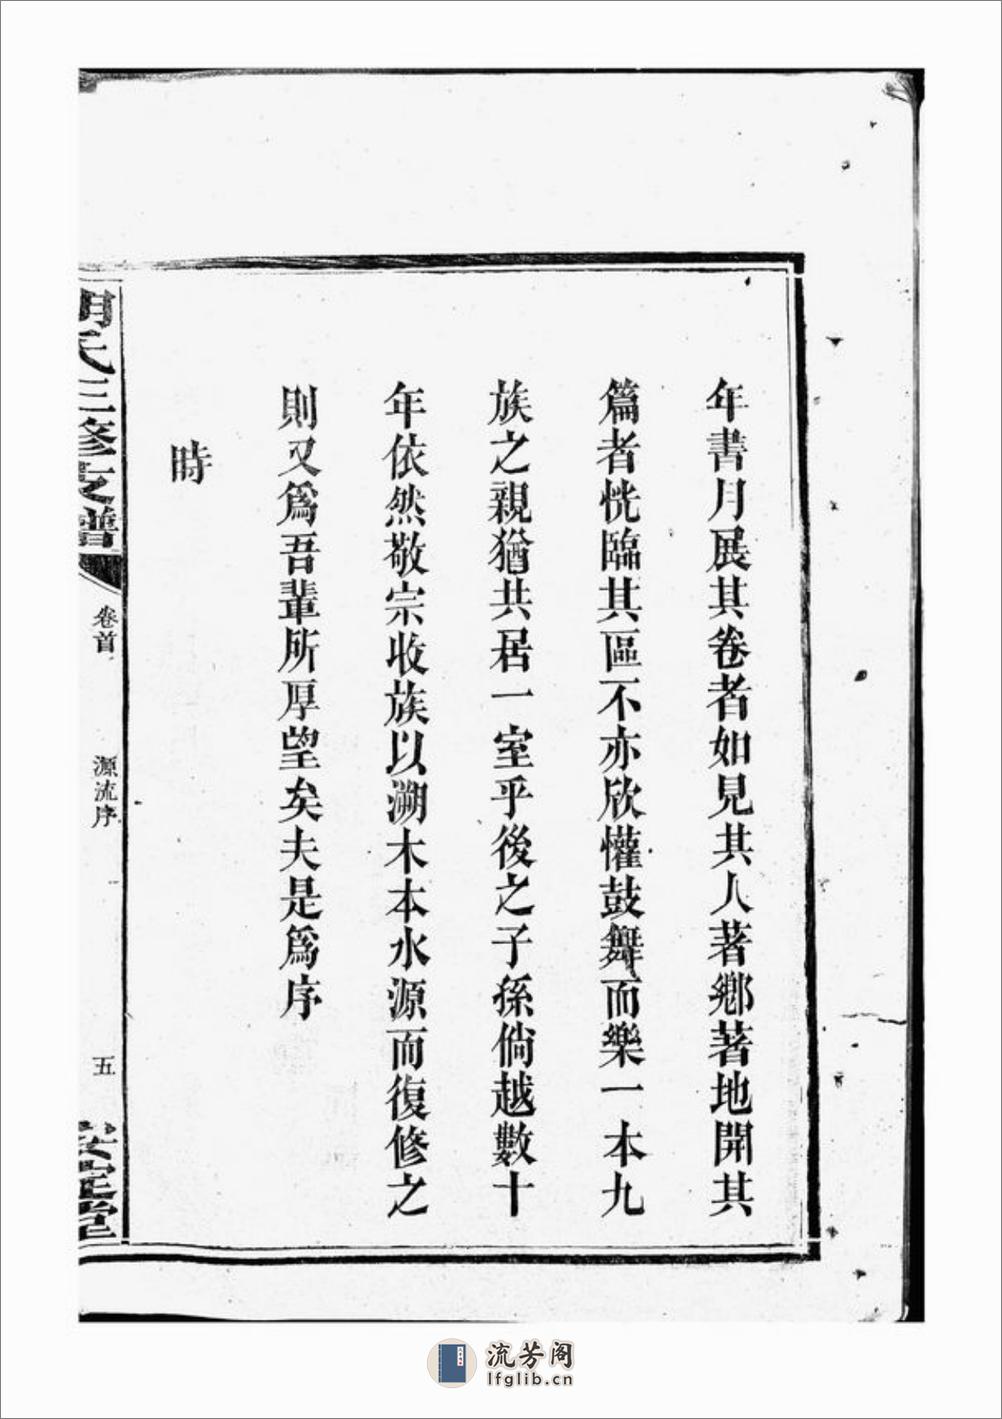 年書月展其卷者如見其人著鄉著地開其
篇者恍臨其區不亦欣懽鼓舞而樂一本九
族之親猶共居一室乎後之子孫倘越數十
年依然敬宗收族以溯木本水源而復修之
則又爲吾輩所厚望矣夫是爲序
時
胡氏三修支譜
卷首
源流序
五
安定堂
流芳阁
lfglib.cn